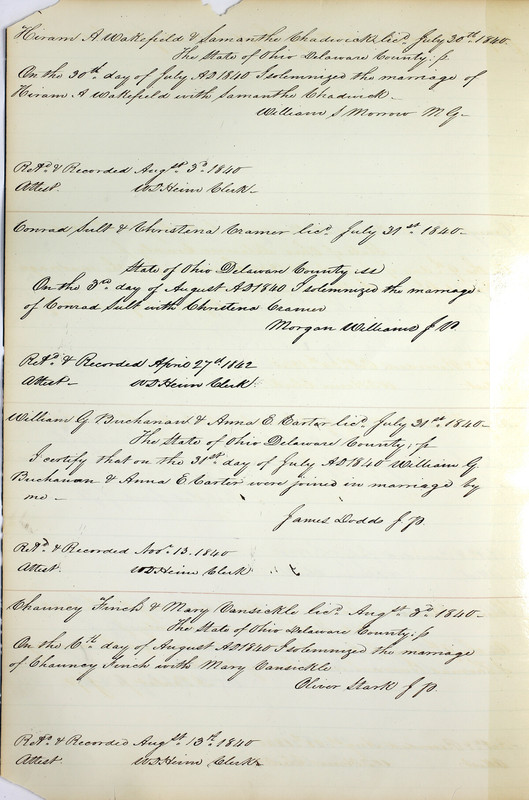 Hiram A Wakefield & Samantha Chadwick licd July 30th 1840.
The State of Ohio Delaware County. ss
On the 30th day of July AD 1840 I solemnized the marriage of
Hiram A Wakefield with Samantha Chadwick –
William S Morrow M G –
Retd & Recorded Augst 3d 1840
Attest. W D Heim Clerk –
Conrad Sult & Christena Cramer licd July 31st 1840 –
State of Ohio Delaware County ss
On the 3rd day of August AD 1840 I solemnized the marriage
of Conrad Sult with Christena Cramer
Morgan Williams J P.
Retd & Recorded April 27th 1842
Attest – W D Heim Clerk.
William G Buchanan & Anna E. Carter licd July 31st 1840 –
The State of Ohio Delaware County, ss
I certify that on the 31st day of July AD 1840 William G
Buchanan & Anna E Carter were joined in marriage by
me –
James Dodds J P.
Retd & Recorded Novr 13. 1840
Attest. W D Heim Clerk
Chauncy Finch & Mary Vansickle licd Augst 3d 1840 –
The State of Ohio Delaware County. ss
On the 6th day of August AD 1840 I solemnized the marriage
of Chauncy Finch with Mary Vansickle
Oliver Stark J P.
Retd & Recorded Augst 13th 1840
Attest. W D Heim Clerk